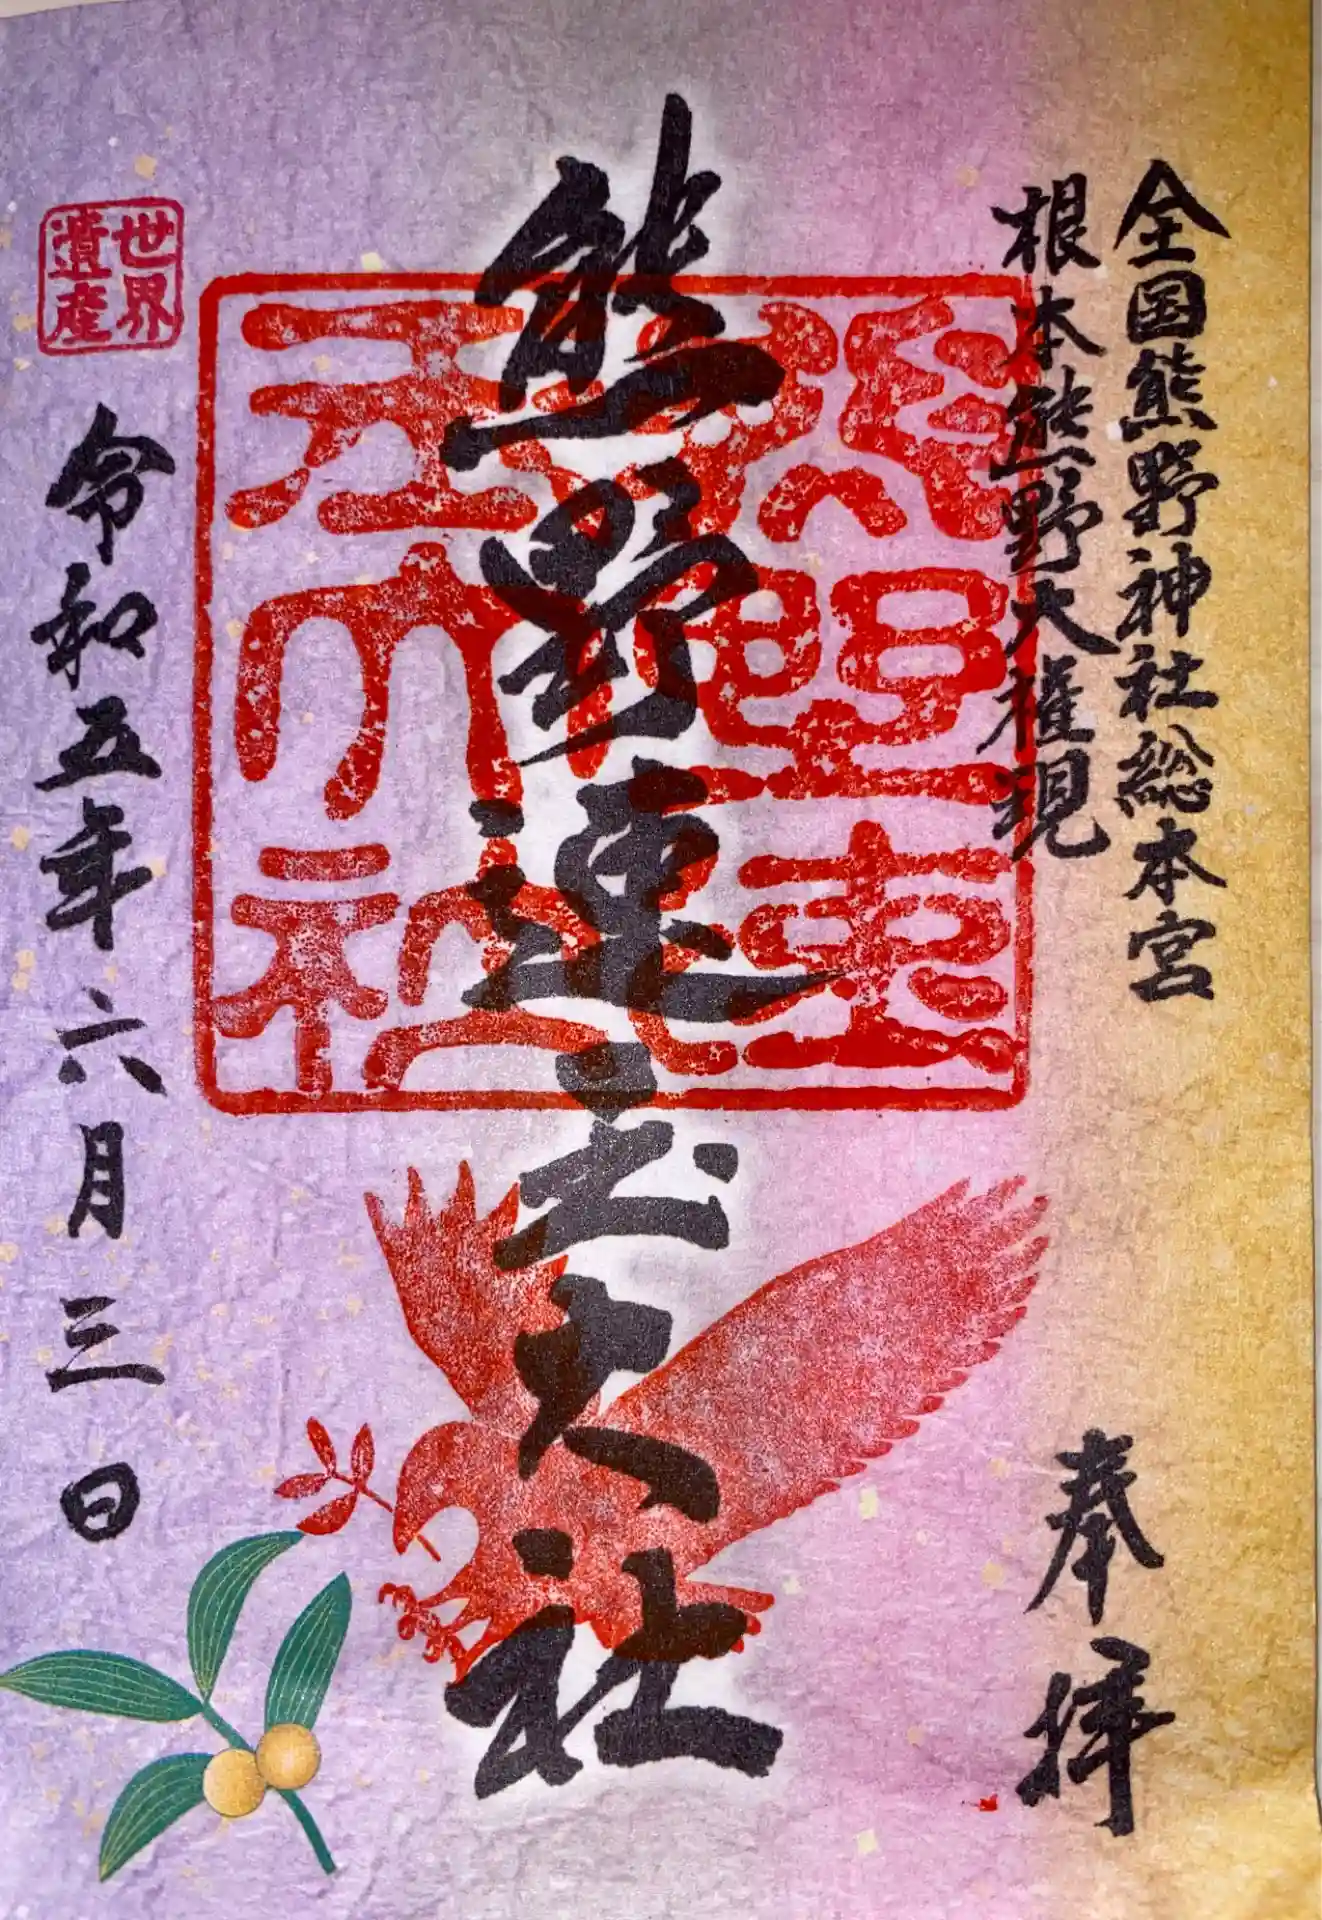 全国熊野神社総本宮
根本熊野大権現
奉拝
熊野速玉大社
熊野速玉大社
世界
遺産
令和五年六月三日